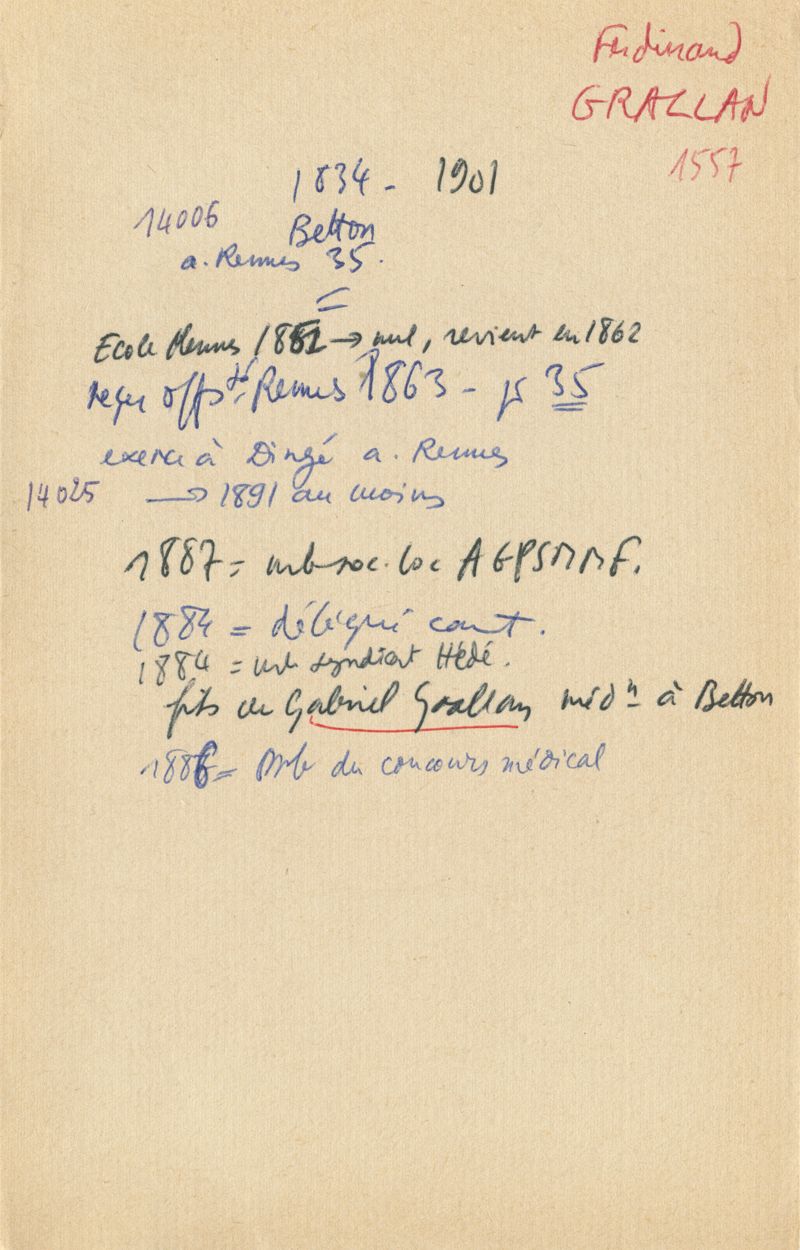 Ferdinand
GRALLAN
1557
1834 - 1901
14006
Betton
a. Rennes 35.
Ecole Rennes 1852 → nul, revient en 1862
reçu offs té Rennes 1863 - pr 35
exerce à Dingé a. Rennes
14025 → 1891 au moins
1887 = mb soc. loc AGPSMMF.
1884 = délégué cant.
1884 = mb syndicat Hédé.
fils de Gabriel Grallan méd n à Betton
1886 = Mb du concours médical